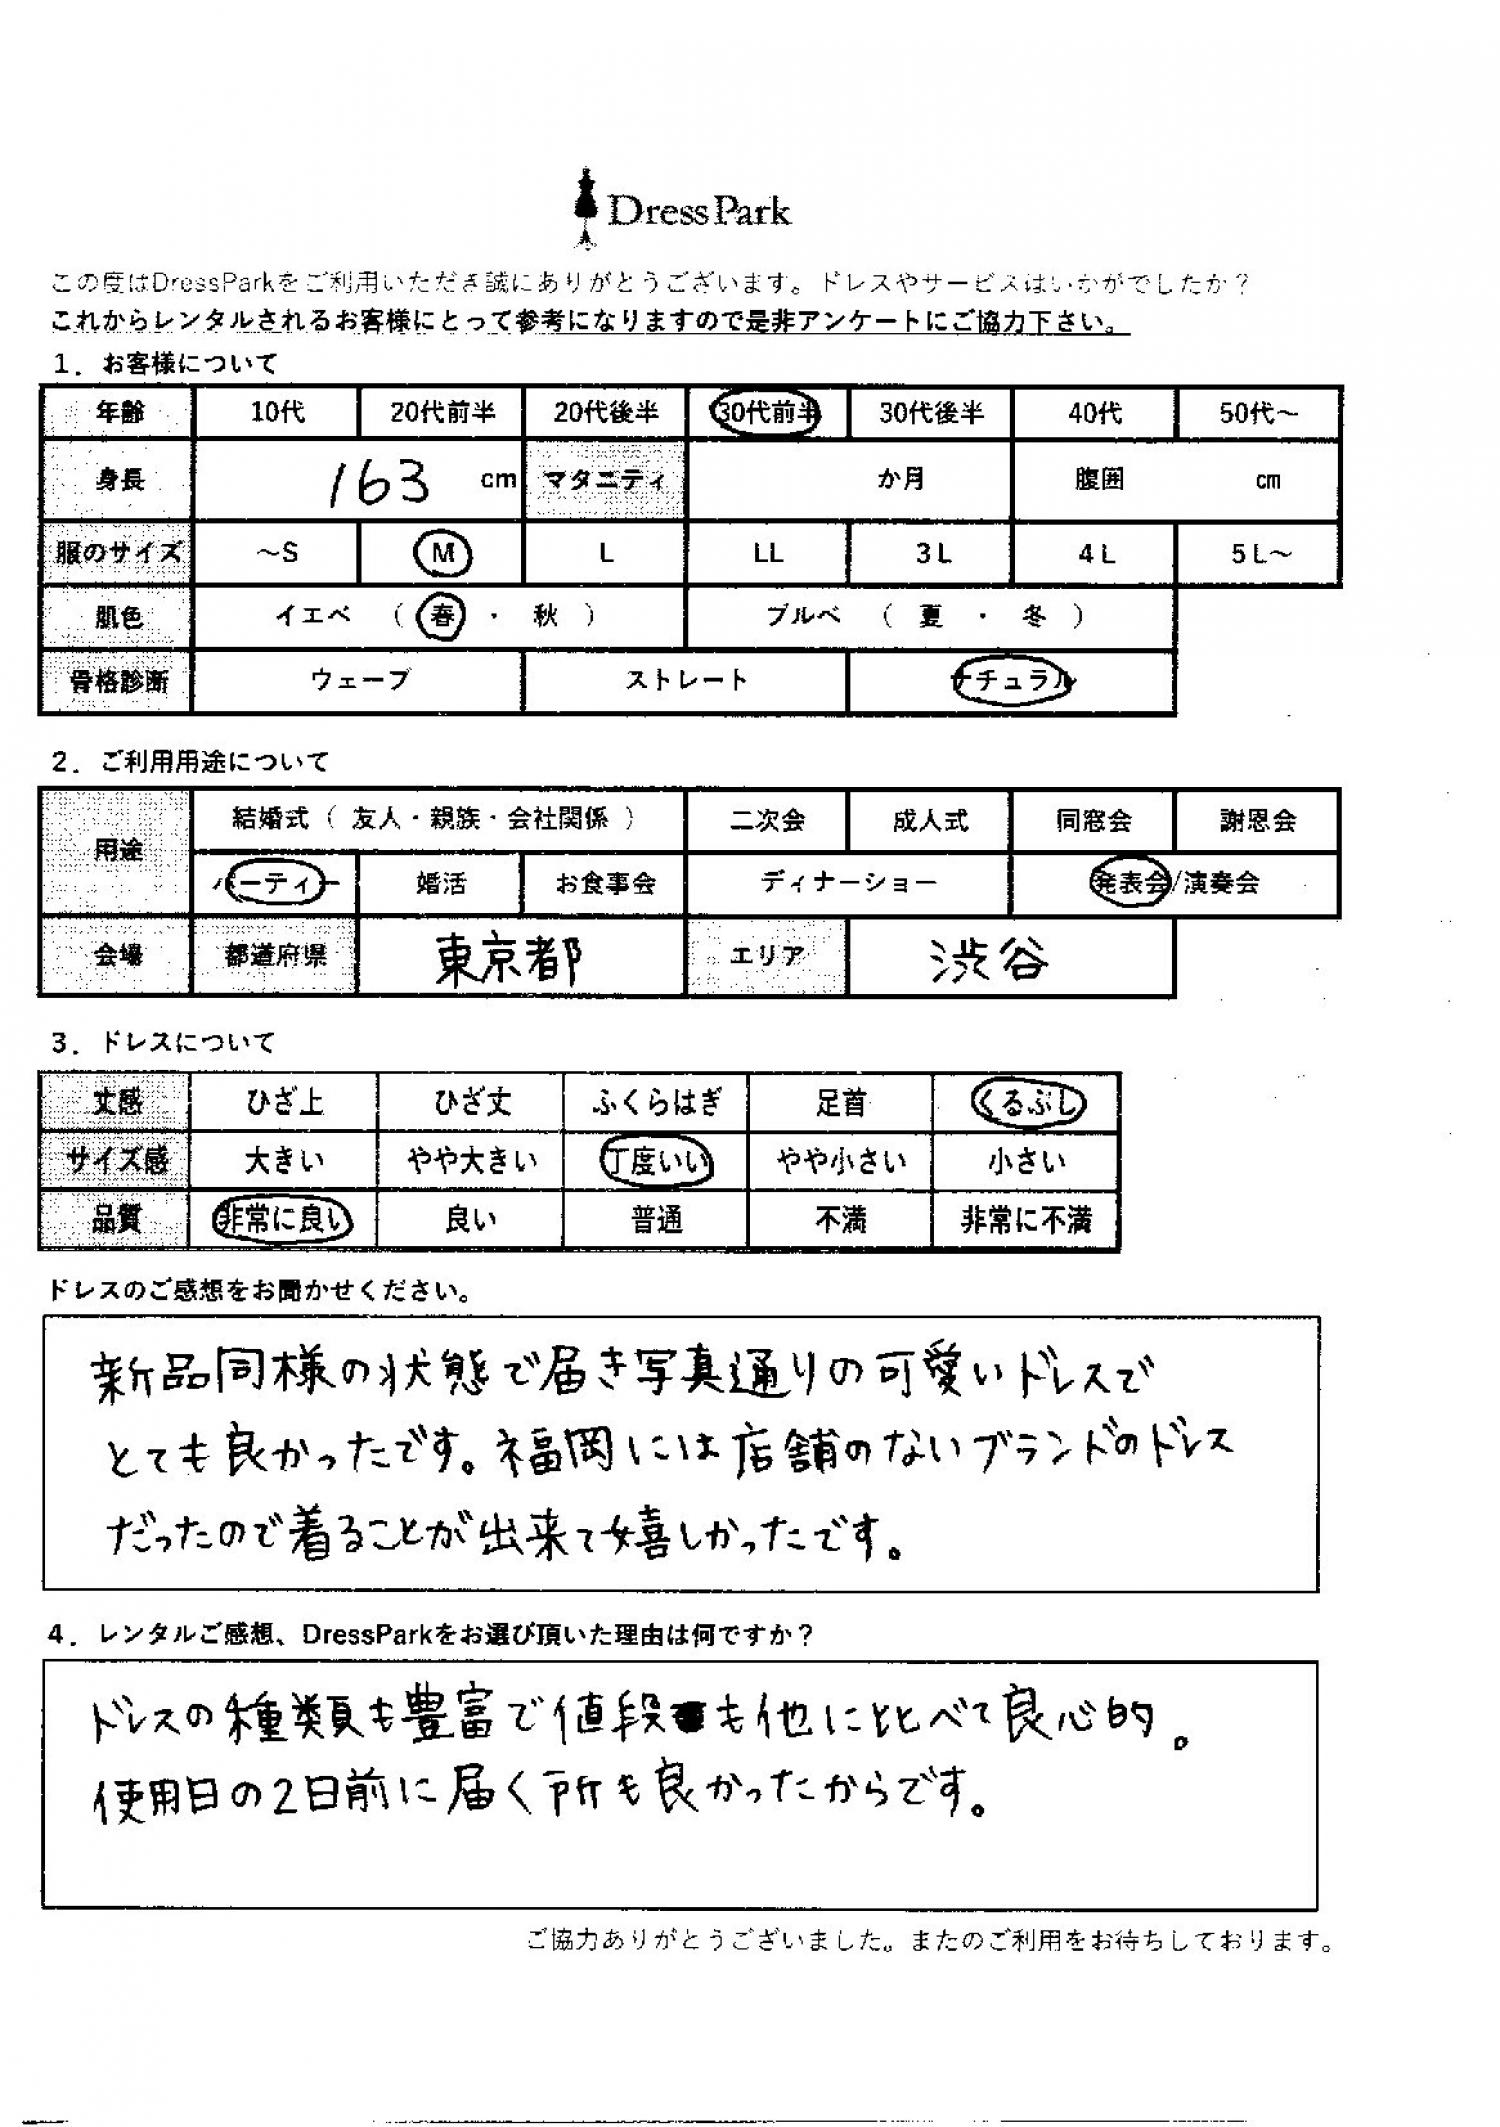 DressPark
この度はDressParkをご利用いただき誠にありがとうございます。ドレスやサービスはいかがでしたか？
これからレンタルされるお客様にとって参考になりますので是非アンケートにご協力下さい。
1．お客様について
年齢 10代 20代前半 20代後半 30代前半 30代後半 40代 50代～
身長 163 cm マタニティ か月 腹囲 cm
服のサイズ ～S M L LL 3L 4L 5L～
肌色 イエベ （ 春 ・ 秋 ） ブルべ （ 夏 ・ 冬 ）
骨格診断 ウェーブ ストレート ナチュラル
2．ご利用用途について
用途 結婚式（ 友人・親族・会社関係 ） 二次会 成人式 同窓会 謝恩会
パーティー 婚活 お食事会 ディナーショー 発表会/演奏会
会場 都道府県 東京都 エリア 渋谷
3．ドレスについて
丈感 ひざ上 ひざ丈 ふくらはぎ 足首 くるぶし
サイズ感 大きい やや大きい 丁度いい やや小さい 小さい
品質 非常に良い 良い 普通 不満 非常に不満
ドレスのご感想をお聞かせください。
新品同様の状態で届き写真通りの可愛いドレスで
とても良かったです。福岡には店舗のないブランドのドレス
だったので着ることが出来て嬉しかったです。
4．レンタルご感想、DressParkをお選び頂いた理由は何ですか？
ドレスの種類も豊富で値段も他に比べて良心的。
使用日の2日前に届く所も良かったからです。
ご協力ありがとうございました。またのご利用をお待ちしております。